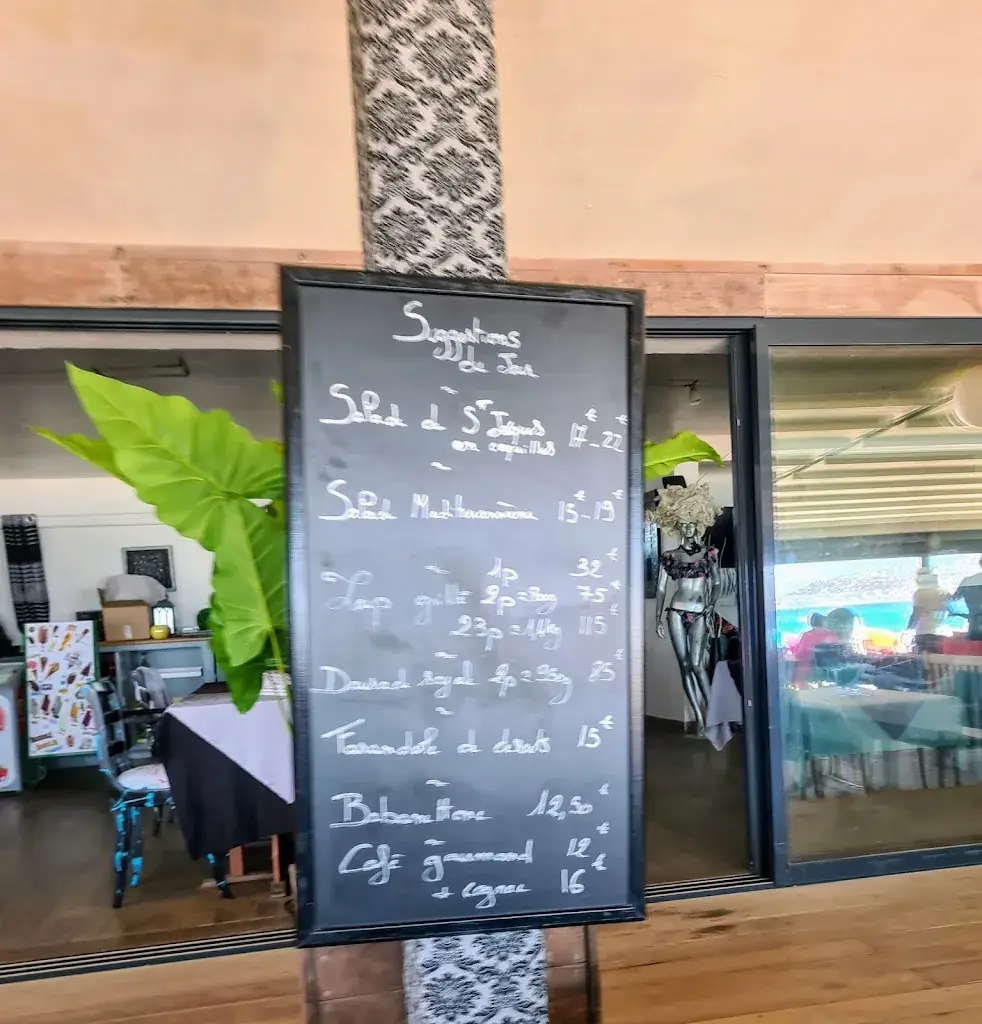 Suggestions
du Jour
~
Salade de St Jacques 17€-22€
en coquilles
~
Salade Méditerranéenne 15€-19€
1p 32€
Loup grillé 2p= 75€
23p = 1,1kg 115€
~
Daurade royal 2p= 85€
~
Farandole de desserts 15€
~
Baba 12,50€
~
Café gourmand 12€
+ cognac 16€